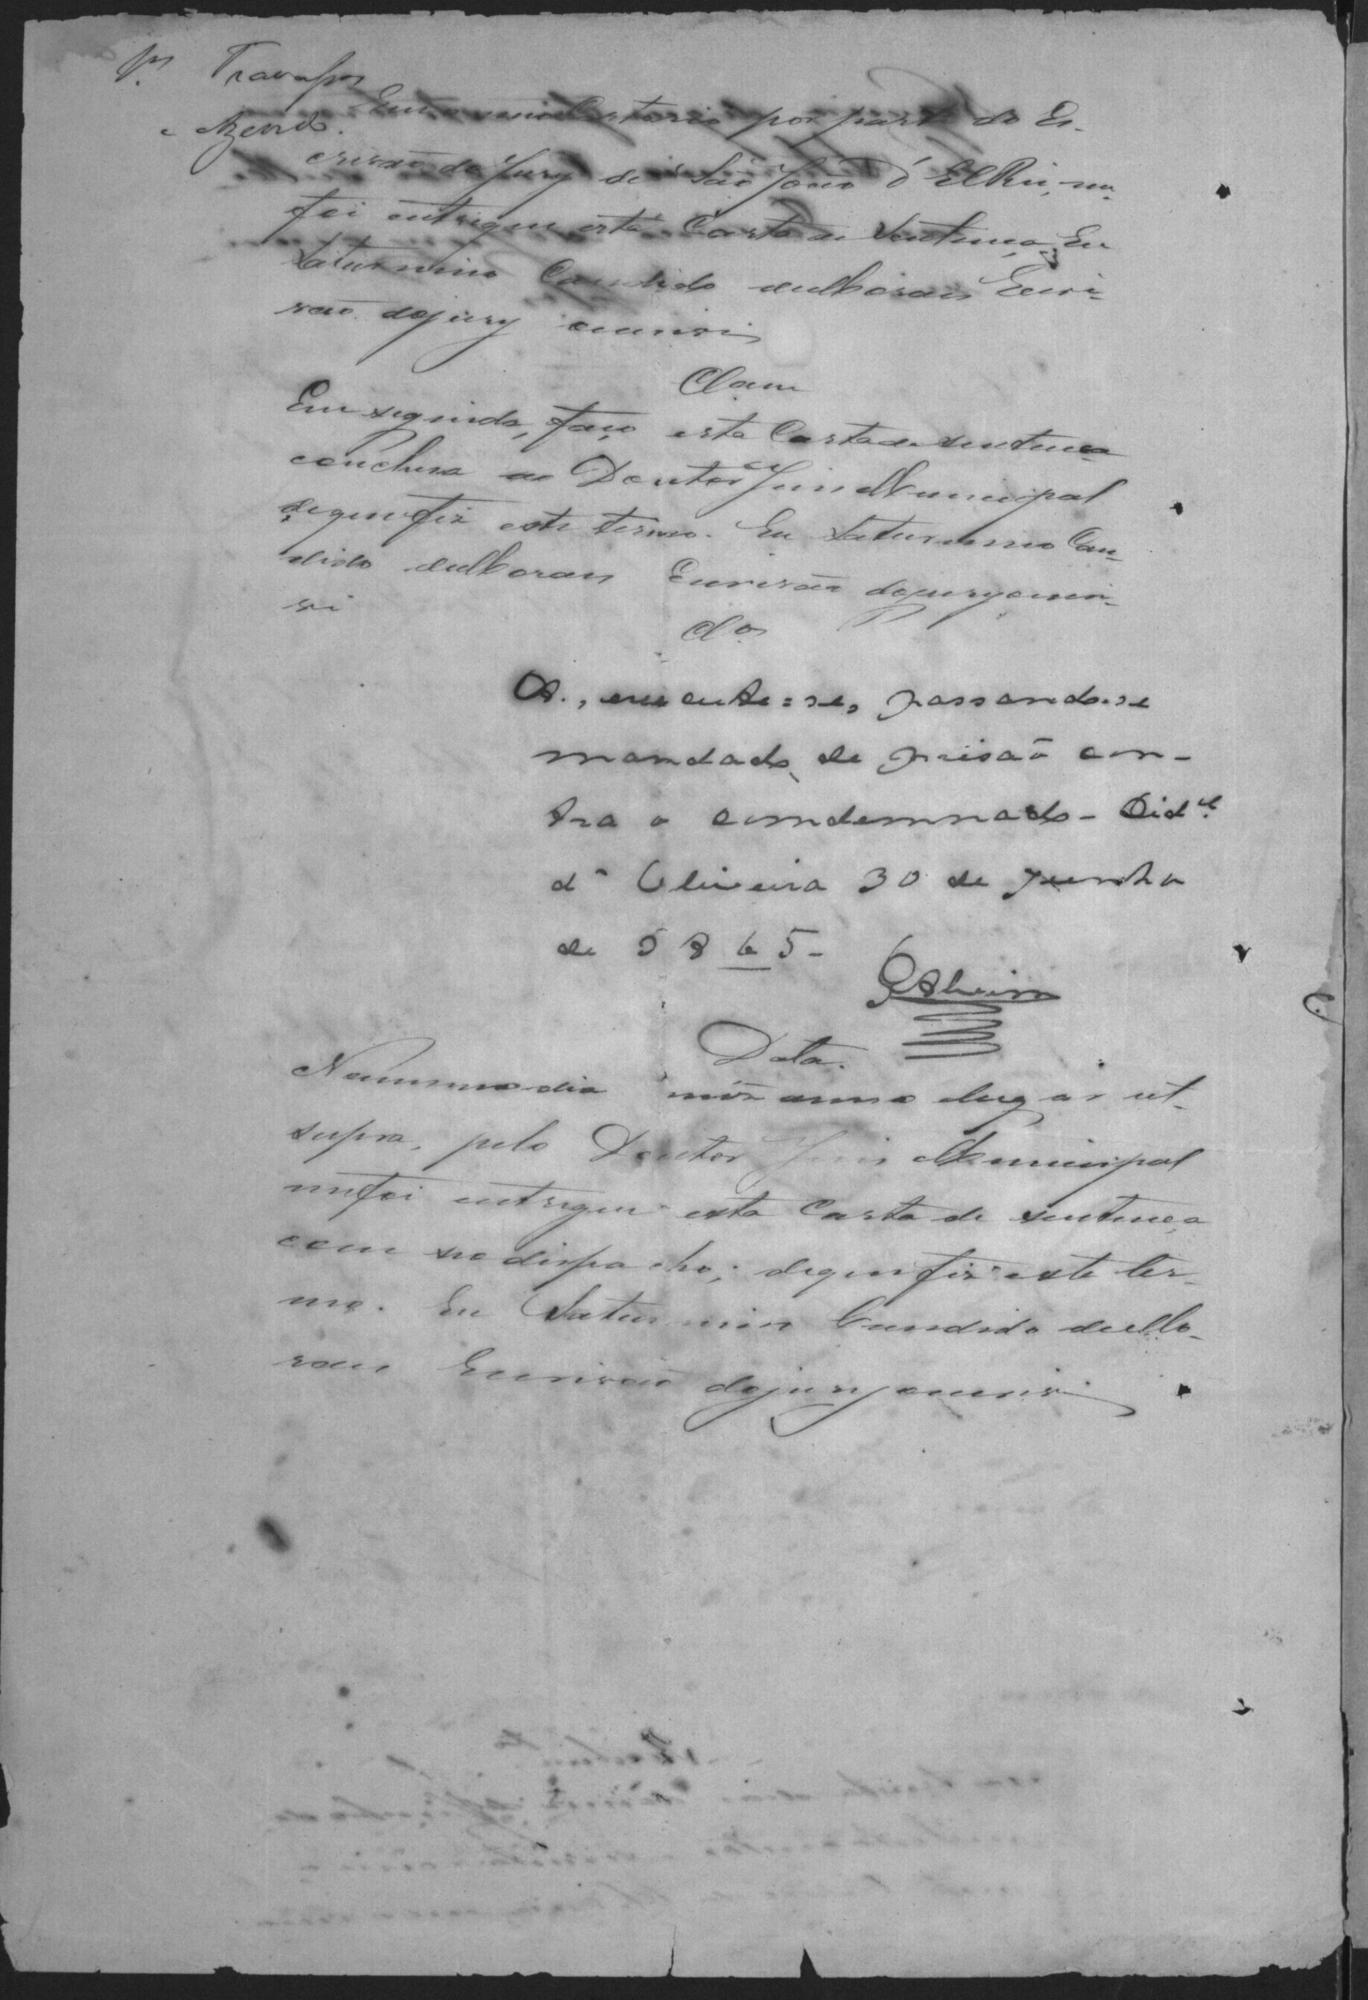 Travassos
e Azevedo.
Em o meo Cartorio por parte do Es-
crivão do Jury de São João d'El Rei, me
foi entregue esta Carta de Sentença, Eu
Saturnino Candido de Moraes Escri-
vão do jury escrevi
Clam
Em seguida, faço esta Carta de sentença
conclusa ao Doutor Juis Municipal
de que fiz este termo. Eu Saturnino Can-
dido de Moraes Escrivão do jury escre-
vi
Clos
A., execute-se, passando-se
mandado de prisão con-
tra o condemnado - Cid.e
d' Oliveira 30 de Junho
de 1865 -
Data.
No mesmo dia mez anno e lugar ut
supra, pelo Doutor Juis Municipal
me foi entregue esta Carta de sentença
com seo dispacho; de que fiz este ter-
mo. Eu Saturnino Candido de Mo-
raes Escrivão do jury escrevi